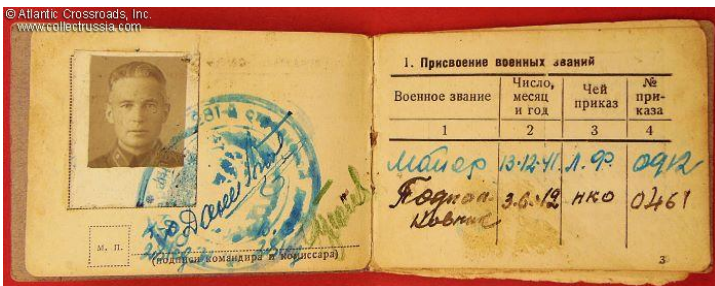 © Atlantic Crossroads, Inc.
www.collectrussia.com
М. П.
(подписи командира и комиссара)
1. Присвоение военных званий
Военное звание
Число, месяц и год
Чей приказ
№ при-каза
1 2 3 4
Майор 13.12.41 Л.Ф. 0912
Подпол-
ковник 3.6.42 НКО 0461
3